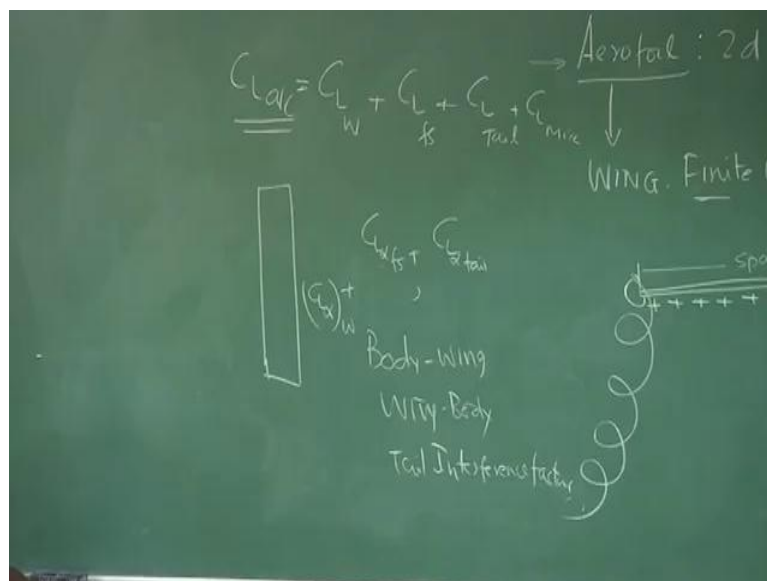 C_L a/c = C_L W + C_L fs + C_L Tail + C_L Misc
→ Aerofoil : 2d
WING. Finite
(C_Lα)_W + C_Lα fs + C_Lα tail
,
Body-Wing
Wing-Body
Tail Interference factor
spa
+ + + + +